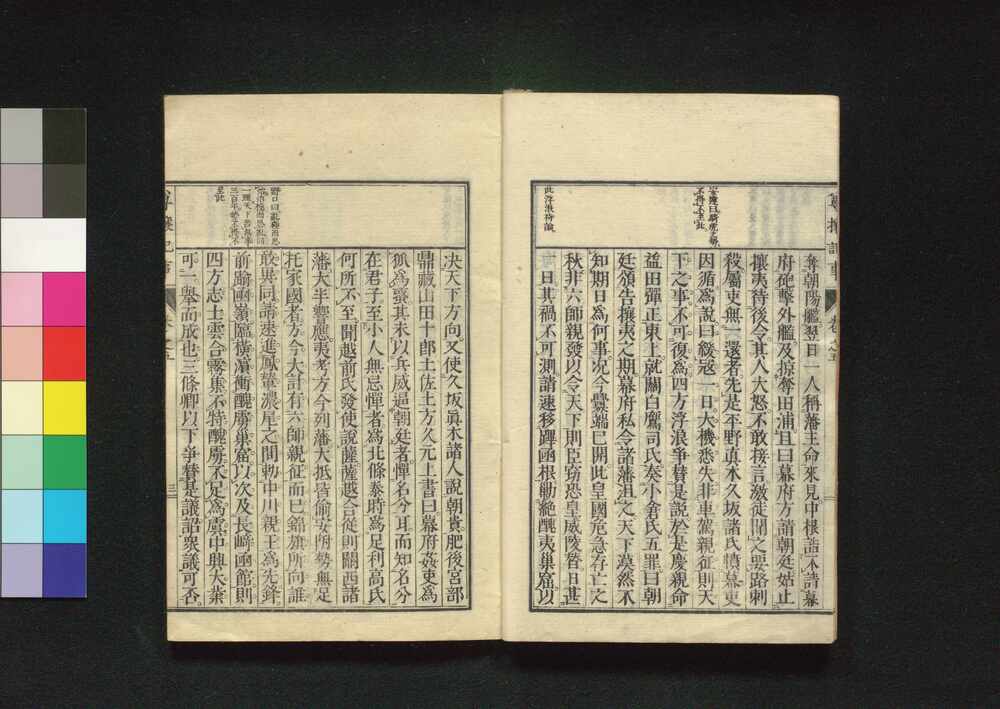 尊攘記事
卷之五
安達曰騎虎之勢
不得不至此
此浮浪持論
奪朝陽艦翌日一人稱藩主命來見中根詰不請幕
府砲擊外艦及掠奪田浦且曰幕府方請朝廷姑止
攘夷待後令其人大怒不敢接言激徒聞之要路刺
殺屬吏無一還者先是平野眞木久坂諸氏憤幕吏
因循爲說曰緩寇一日大機悉失非車駕親征則天
下之事不可復爲四方浮浪爭贊是說於是慶親命
益田彈正東上就關白鷹司氏奏小倉氏五罪曰朝
廷頒告攘夷之期幕府私令諸藩沮之天下漠然不
知期日爲何事況今釁端已開此皇國危急存亡之
秋非六師親發以令天下則臣竊恐皇威陵替日甚
一日其禍不可測請速移蹕函根勦絶醜夷巢窟以
決天下方向又使久坂眞木諸人說朝貴肥後宮部
鼎藏山田十郎土佐土方久元上書曰幕府姦吏爲
狐爲蜮其未以兵威逼朝廷者憚名分耳而知名分
在君子至小人無忌憚者爲北條泰時爲足利高氏
何所不至聞越前氏發使說薩薩越合從則關西諸
藩大半響應夷考方今列藩大抵皆偷安附勢無足
托家國者方今大計有六師親征而已錦旗所向誰
敢異同請速進鳳輦濃尾之間勅中川親王爲先鋒
前踰函嶺臨橫濱衝醜虜巢窟以次及長崎函館則
四方志士雲合霧集不特醜虜不足爲虞中興大業
可一擧而成也三條卿以下爭贊是議詔衆議可否
野口曰亂極治思
治極
一理天下
三百年終不得不
至此
尊攘紀事
三